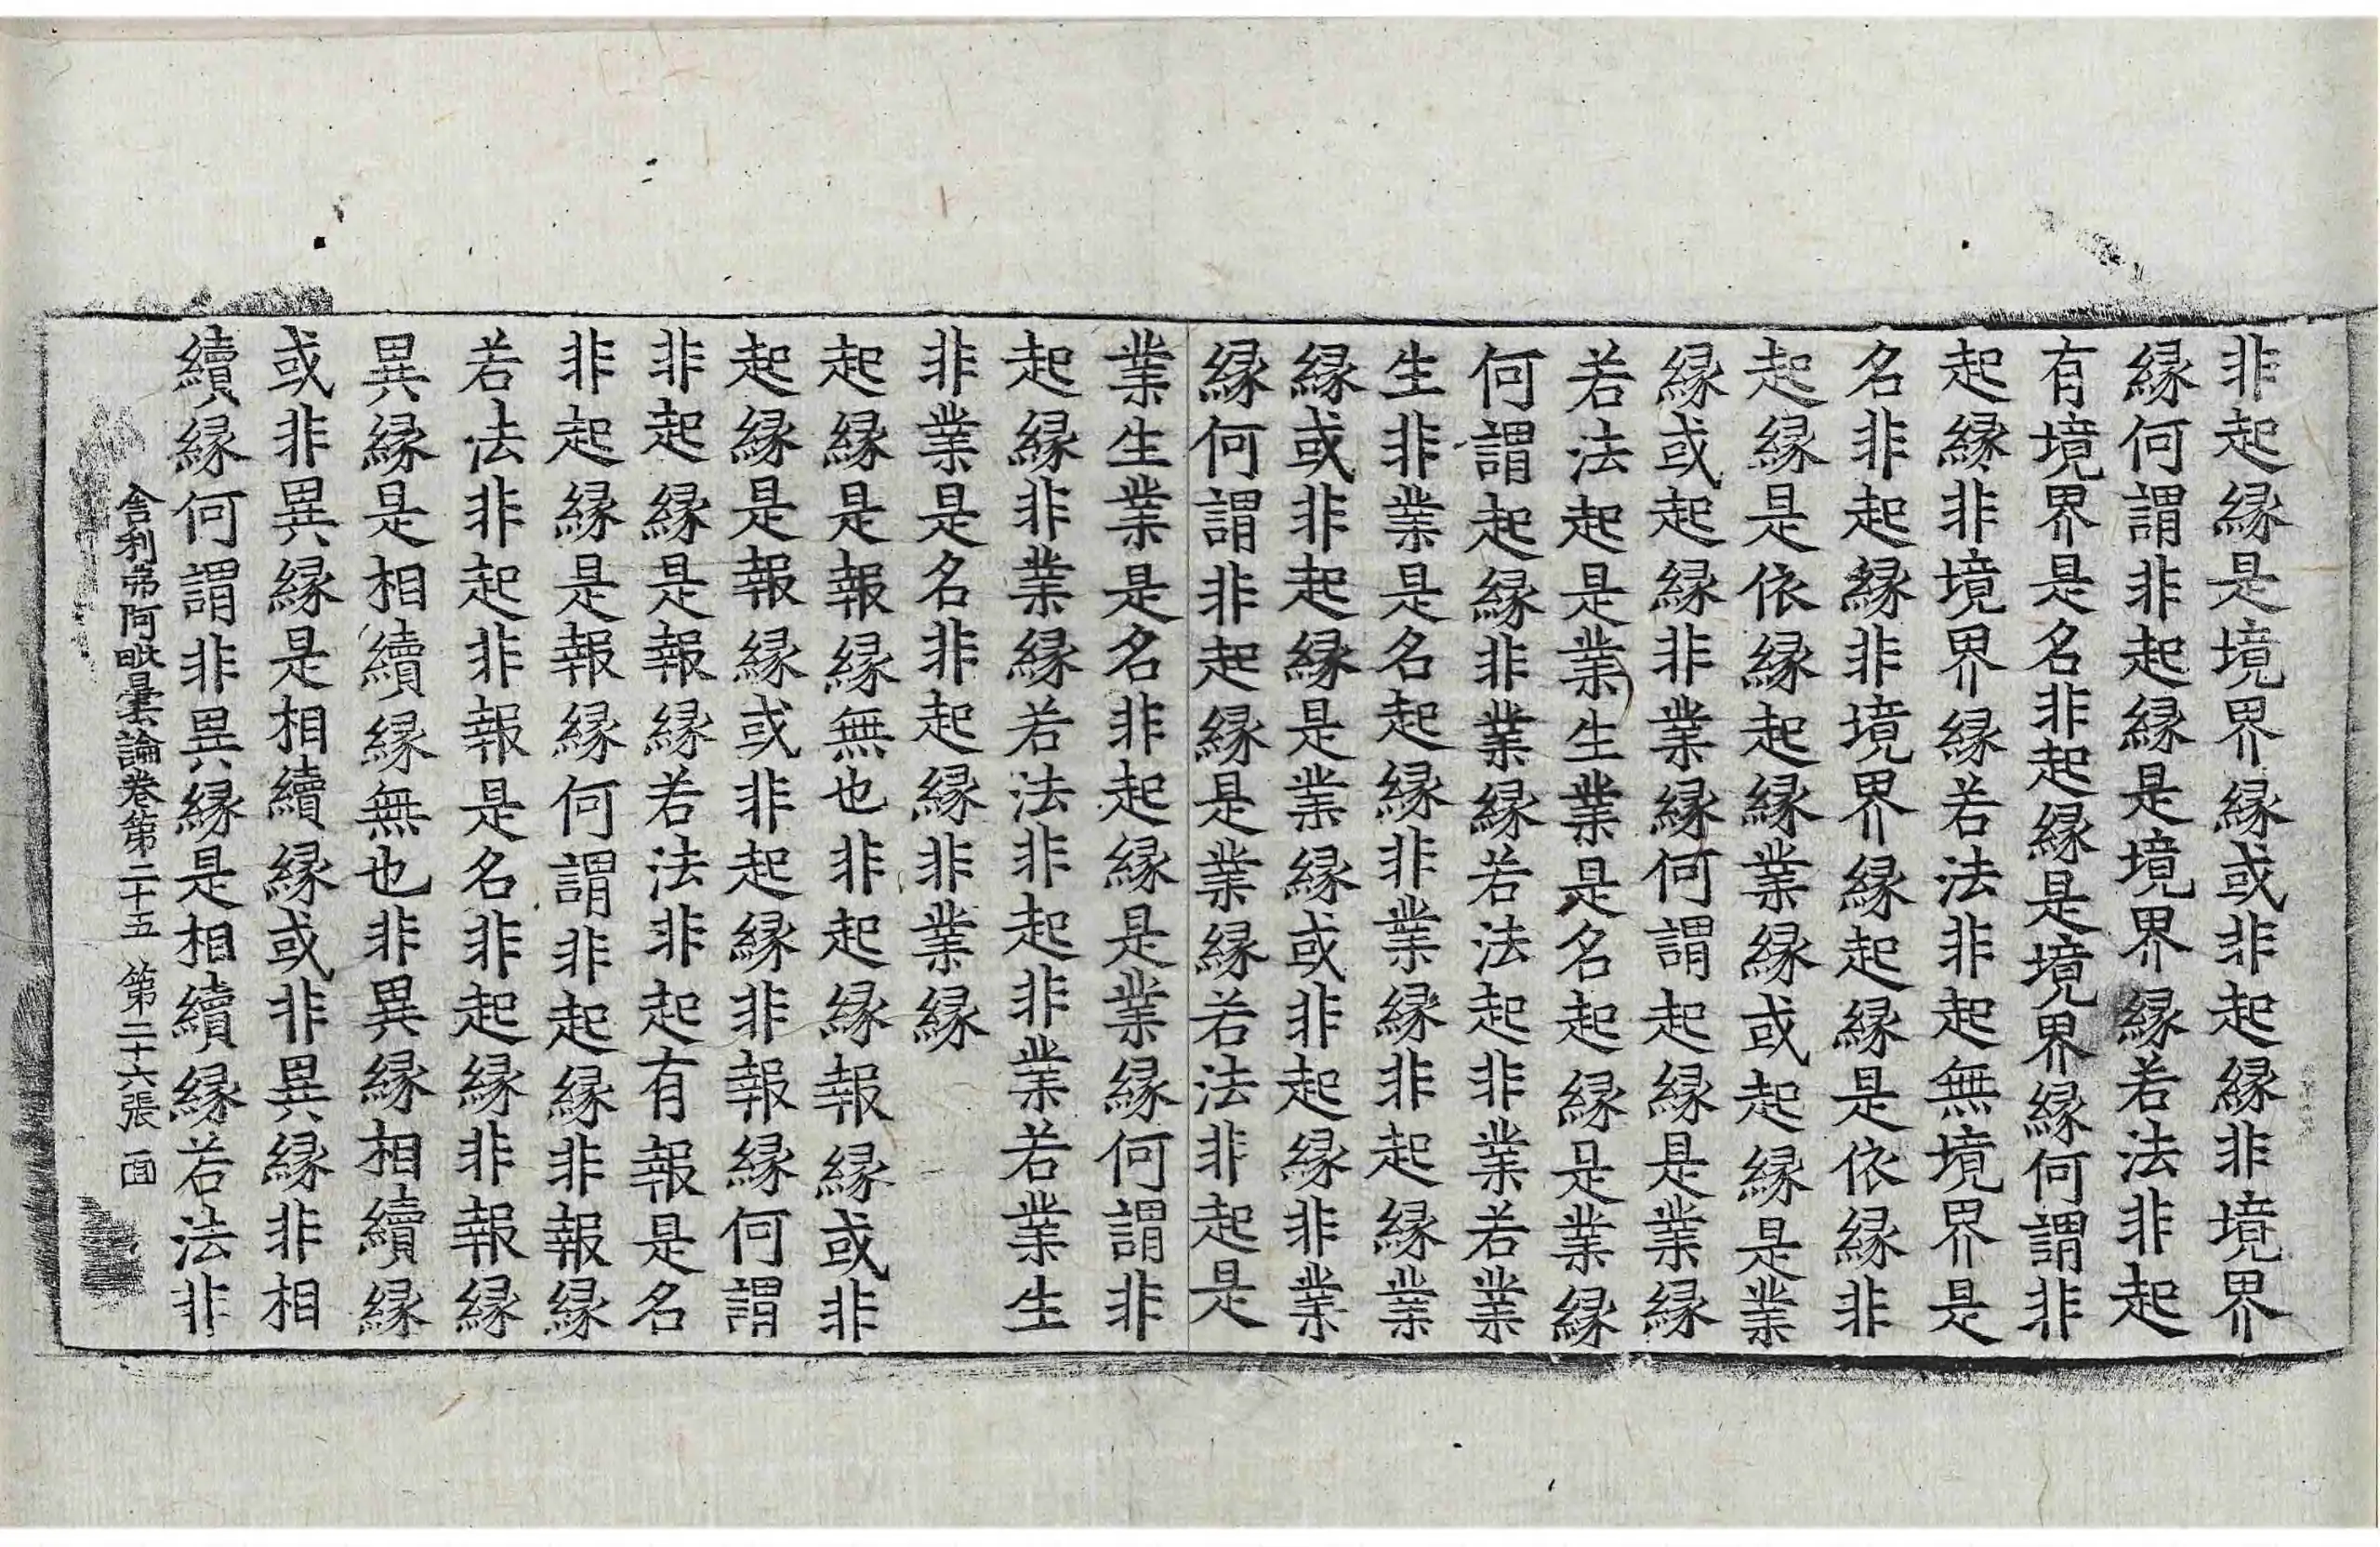 非起緣是境界緣或非起緣非境界
緣何謂非起緣是境界緣若法非起
有境界是名非起緣是境界緣何謂非
起緣非境界緣若法非起無境界是
名非起緣非境界緣起緣是依緣非
起緣是依緣起緣業緣或起緣是業
緣或起緣非業緣何謂起緣是業緣
若法起是業生業是名起緣是業緣
何謂起緣非業緣若法起非業若業
生非業是名起緣非業緣非起緣業
緣或非起緣是業緣或非起緣非業
緣何謂非起緣是業緣若法非起是
業生業是名非起緣是業緣何謂非
起緣非業緣若法非起非業若業生
非業是名非起緣非業緣
起緣是報緣無也非起緣報緣或非
起緣是報緣或非起緣非報緣何謂
非起緣是報緣若法非起有報是名
非起緣是報緣何謂非起緣非報緣
若法非起非報是名非起緣非報緣
異緣是相續緣無也非異緣相續緣
或非異緣是相續緣或非異緣非相
續緣何謂非異緣是相續緣若法非
舍利弗阿毗曇論卷第二十五 第二十六張 𠚍